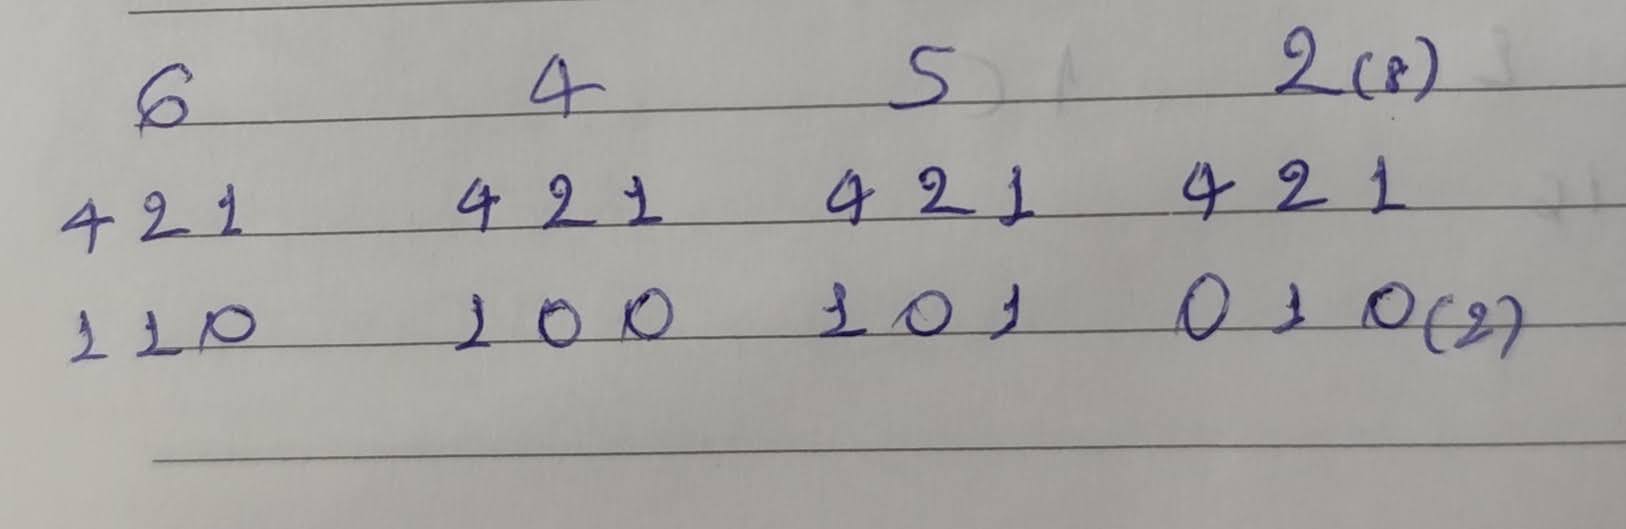 6 4 5 2(8)
4 2 1 4 2 1 4 2 1 4 2 1
1 1 0 1 0 0 1 0 1 0 1 0(2)